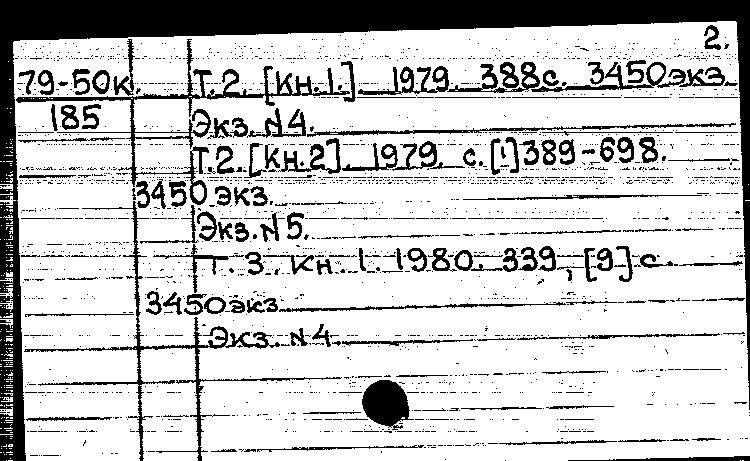 2.
79-50к. Т.2. [Кн.1.]. 1979. 388с. 3450экз.
185 Экз. N4.
Т.2. [Кн.2]. 1979. с.[!]389-698.
3450 экз.
Экз. N5.
Т. 3. Кн. 1. 1980. 339, [9] с.
3450экз.
Экз. N4